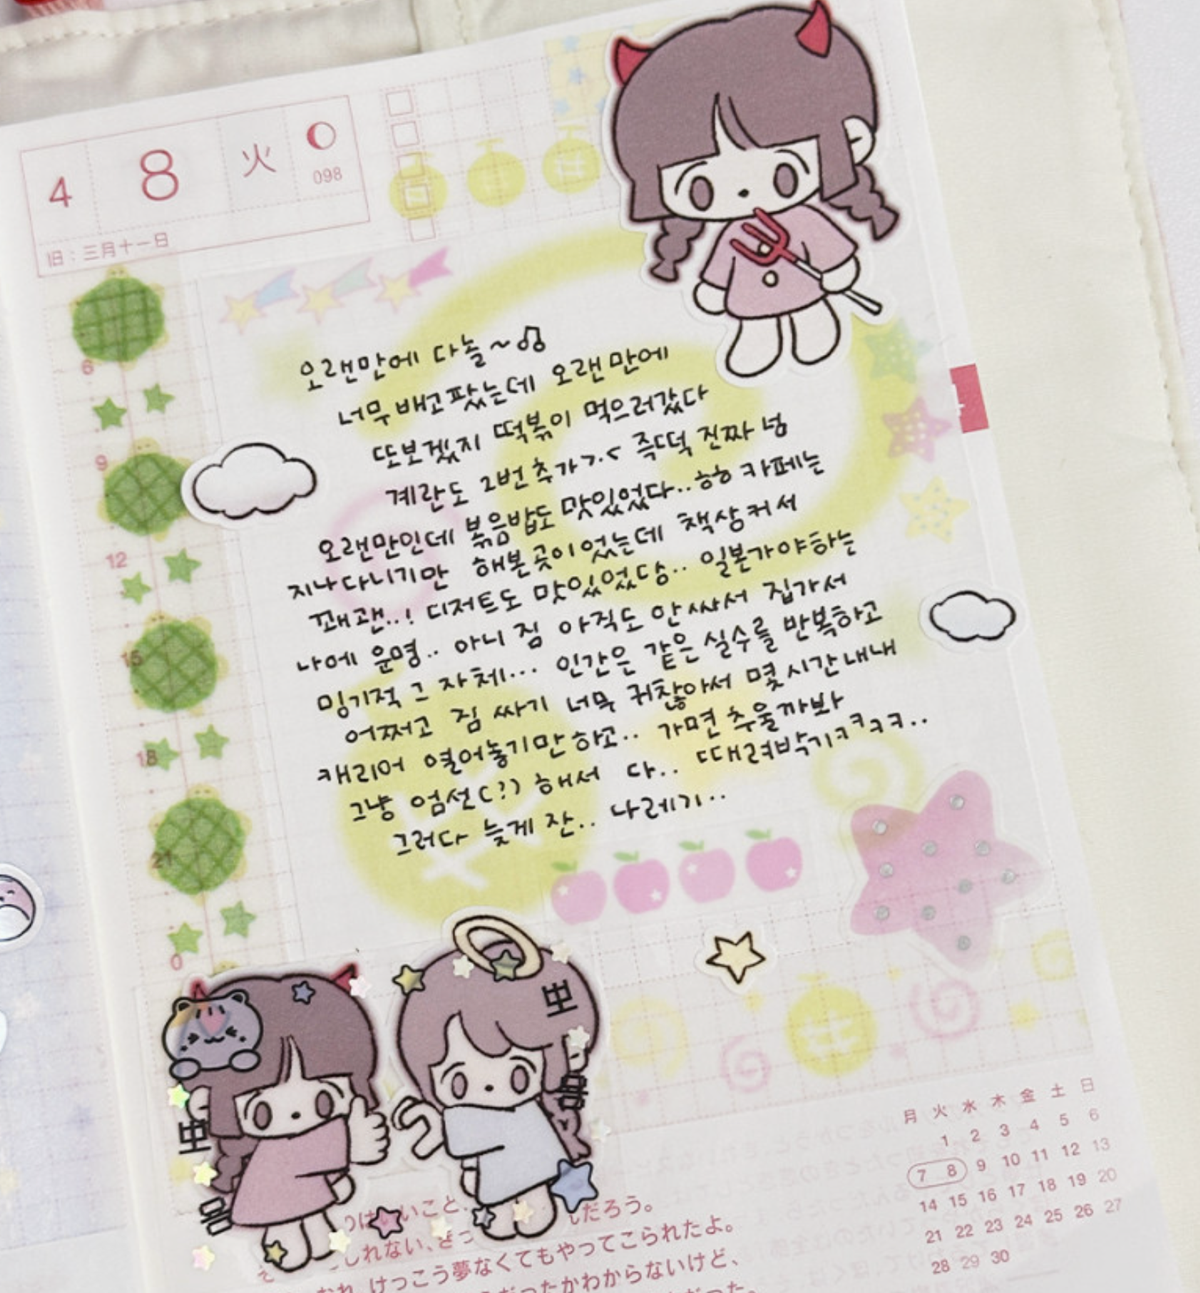 4 8 火
098
旧：三月十一日
오랜만에 다놀~♫
너무 배고팠는데 오랜만에
또보겠지 떡볶이 먹으러갔다
계란도 2번 추가>.< 즉떡 진짜 넘
오랜만인데 볶음밥도 맛있었다..ㅎㅎ 카페는
지나다니기만 해본곳이었는데 책상커서
꽤괜..! 디저트도 맛있었당.. 일본가야하는
나에 운명.. 아니 짐 아직도 안싸서 집가서
밍기적 그 자체... 인간은 같은 실수를 반복하고
어쩌고 짐 싸기 너무 귀찮아서 몇시간내내
캐리어 열어놓기만하고.. 가면 추울까봐
그냥 엄선(?) 해서 다.. 때려박기ㅋㅋㅋㅋ..
그러다 늦게 잔.. 나레기..
6
9
12
15
18
21
0
뽀
뽀
月 火 水 木 金 土 日
1 2 3 4 5 6
7 8 9 10 11 12 13
14 15 16 17 18 19 20
21 22 23 24 25 26 27
28 29 30
いこと
だろう。
しれない、
けっこう夢なくてもやってこられたよ。
だったかわからないけど、